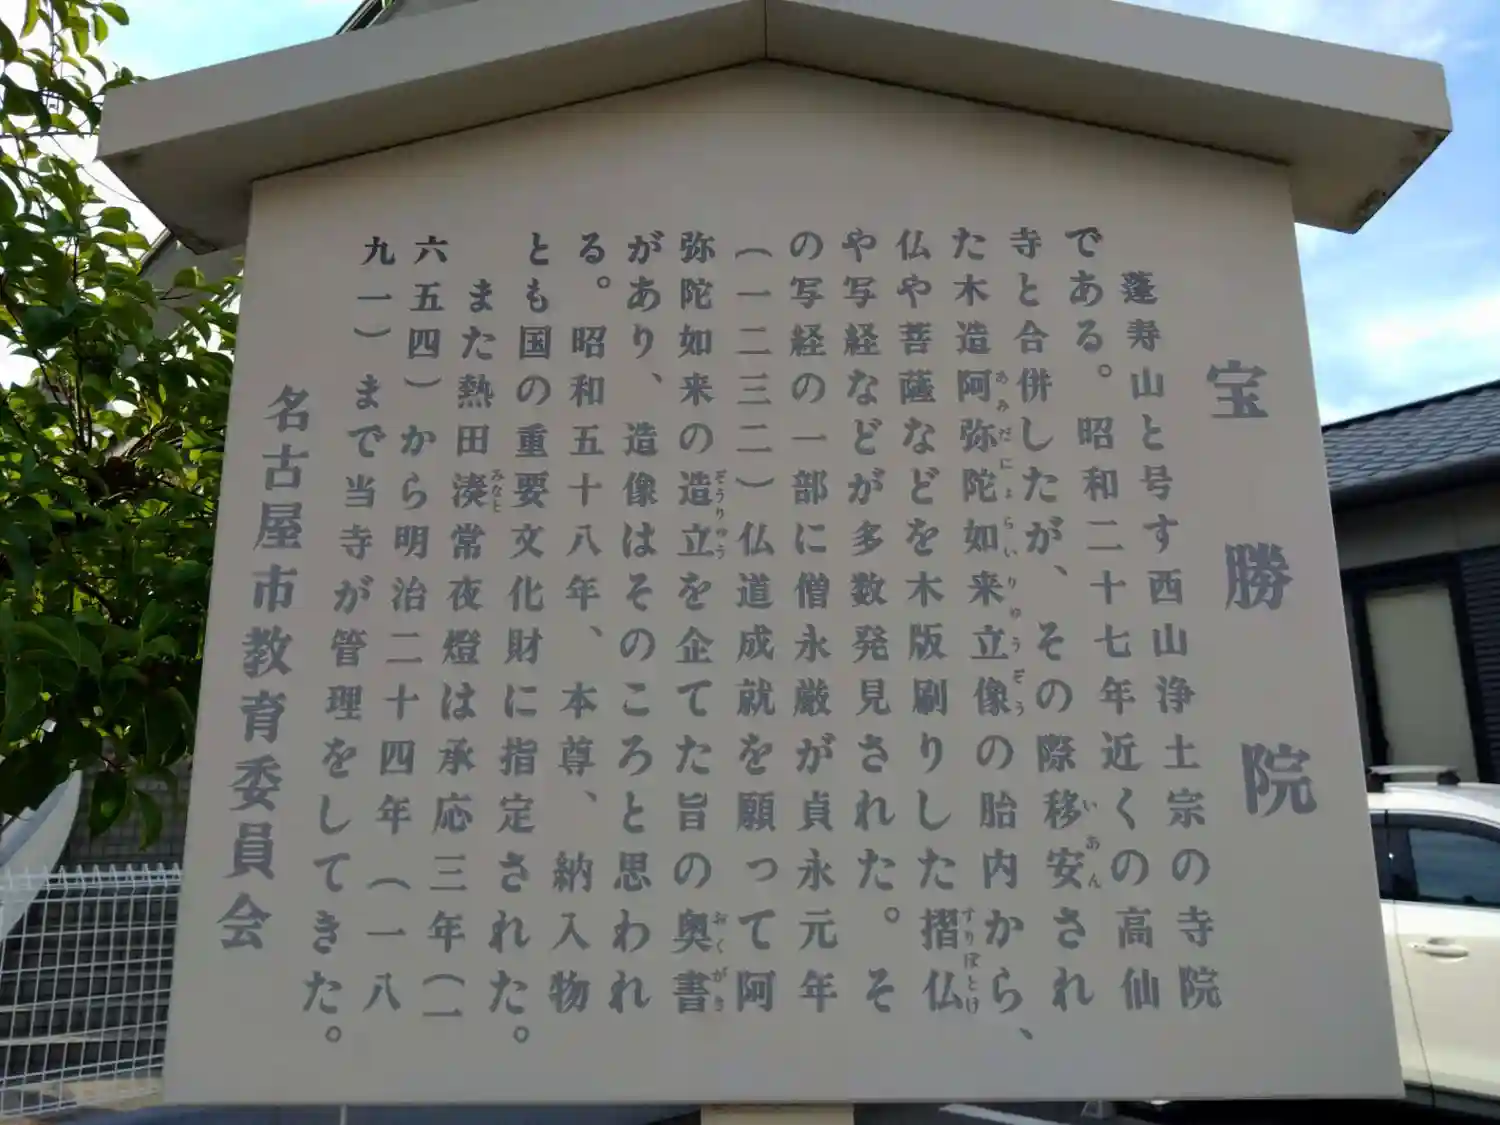 宝勝院
蓬寿山と号す西山浄土宗の寺院
である。昭和二十七年近くの高仙
寺と合併したが、その際移安され
た木造阿弥陀如来立像の胎内から、
仏や菩薩などを木版刷りした摺仏
や写経などが多数発見された。そ
の写経の一部に僧永厳が貞永元年
（一二三二）仏道成就を願って阿
弥陀如来の造立を企てた旨の奥書
があり、造像はそのころと思われ
る。昭和五十八年、本尊、納入物
とも国の重要文化財に指定された。
また熱田湊常夜燈は承応三年（一
六五四）から明治二十四年（一八
九一）まで当寺が管理をしてきた。
名古屋市教育委員会
いあん
あみだにょらいりゅうぞう
すりぼとけ
ぞうりゅう
おくがき
みなと